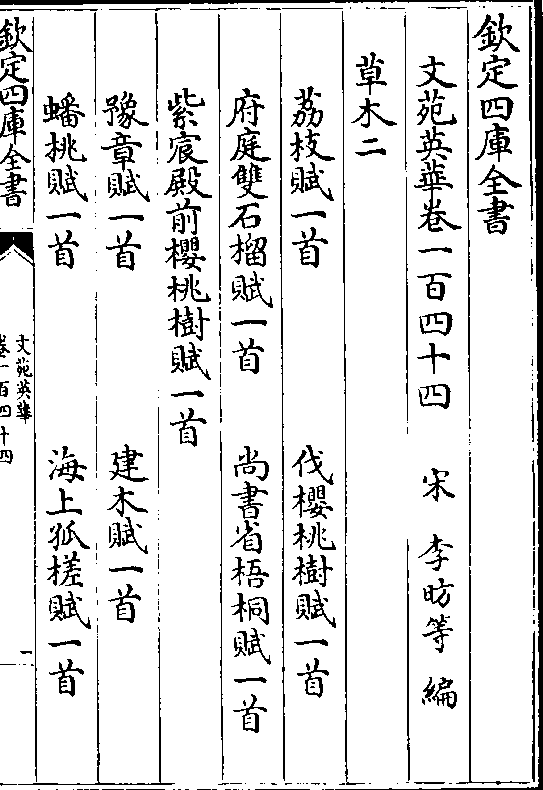 欽定四庫全書
文苑英華卷一百四十四　宋　李昉等　編
草木二
荔枝賦一首　伐櫻桃樹賦一首
府庭雙石榴賦一首　尚書省梧桐賦一首
紫宸殿前櫻桃樹賦一首
豫章賦一首　建木賦一首
蟠桃賦一首　海上孤槎賦一首
欽定四庫全書
文苑英華
卷一百四十四
一